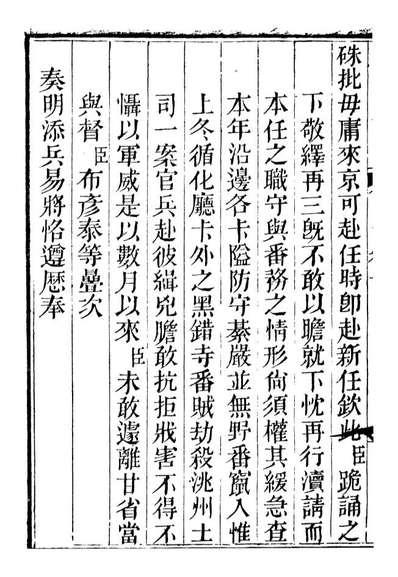 硃批毋庸來京可赴任時卽赴新任欽此臣跪誦之
下敬繹再三旣不敢以瞻就下忱再行瀆請而
本任之職守與番務之情形尙須權其緩急查
本年沿邊各卡隘防守綦嚴並無野番竄入惟
上冬循化廳卡外之黑錯寺番賊劫殺洮州土
司一案官兵赴彼緝兇膽敢抗拒戕害不得不
懾以軍威是以數月以來臣未敢遽離甘省當
與督臣布彥泰等疊次
奏明添兵易將恪遵歷奉